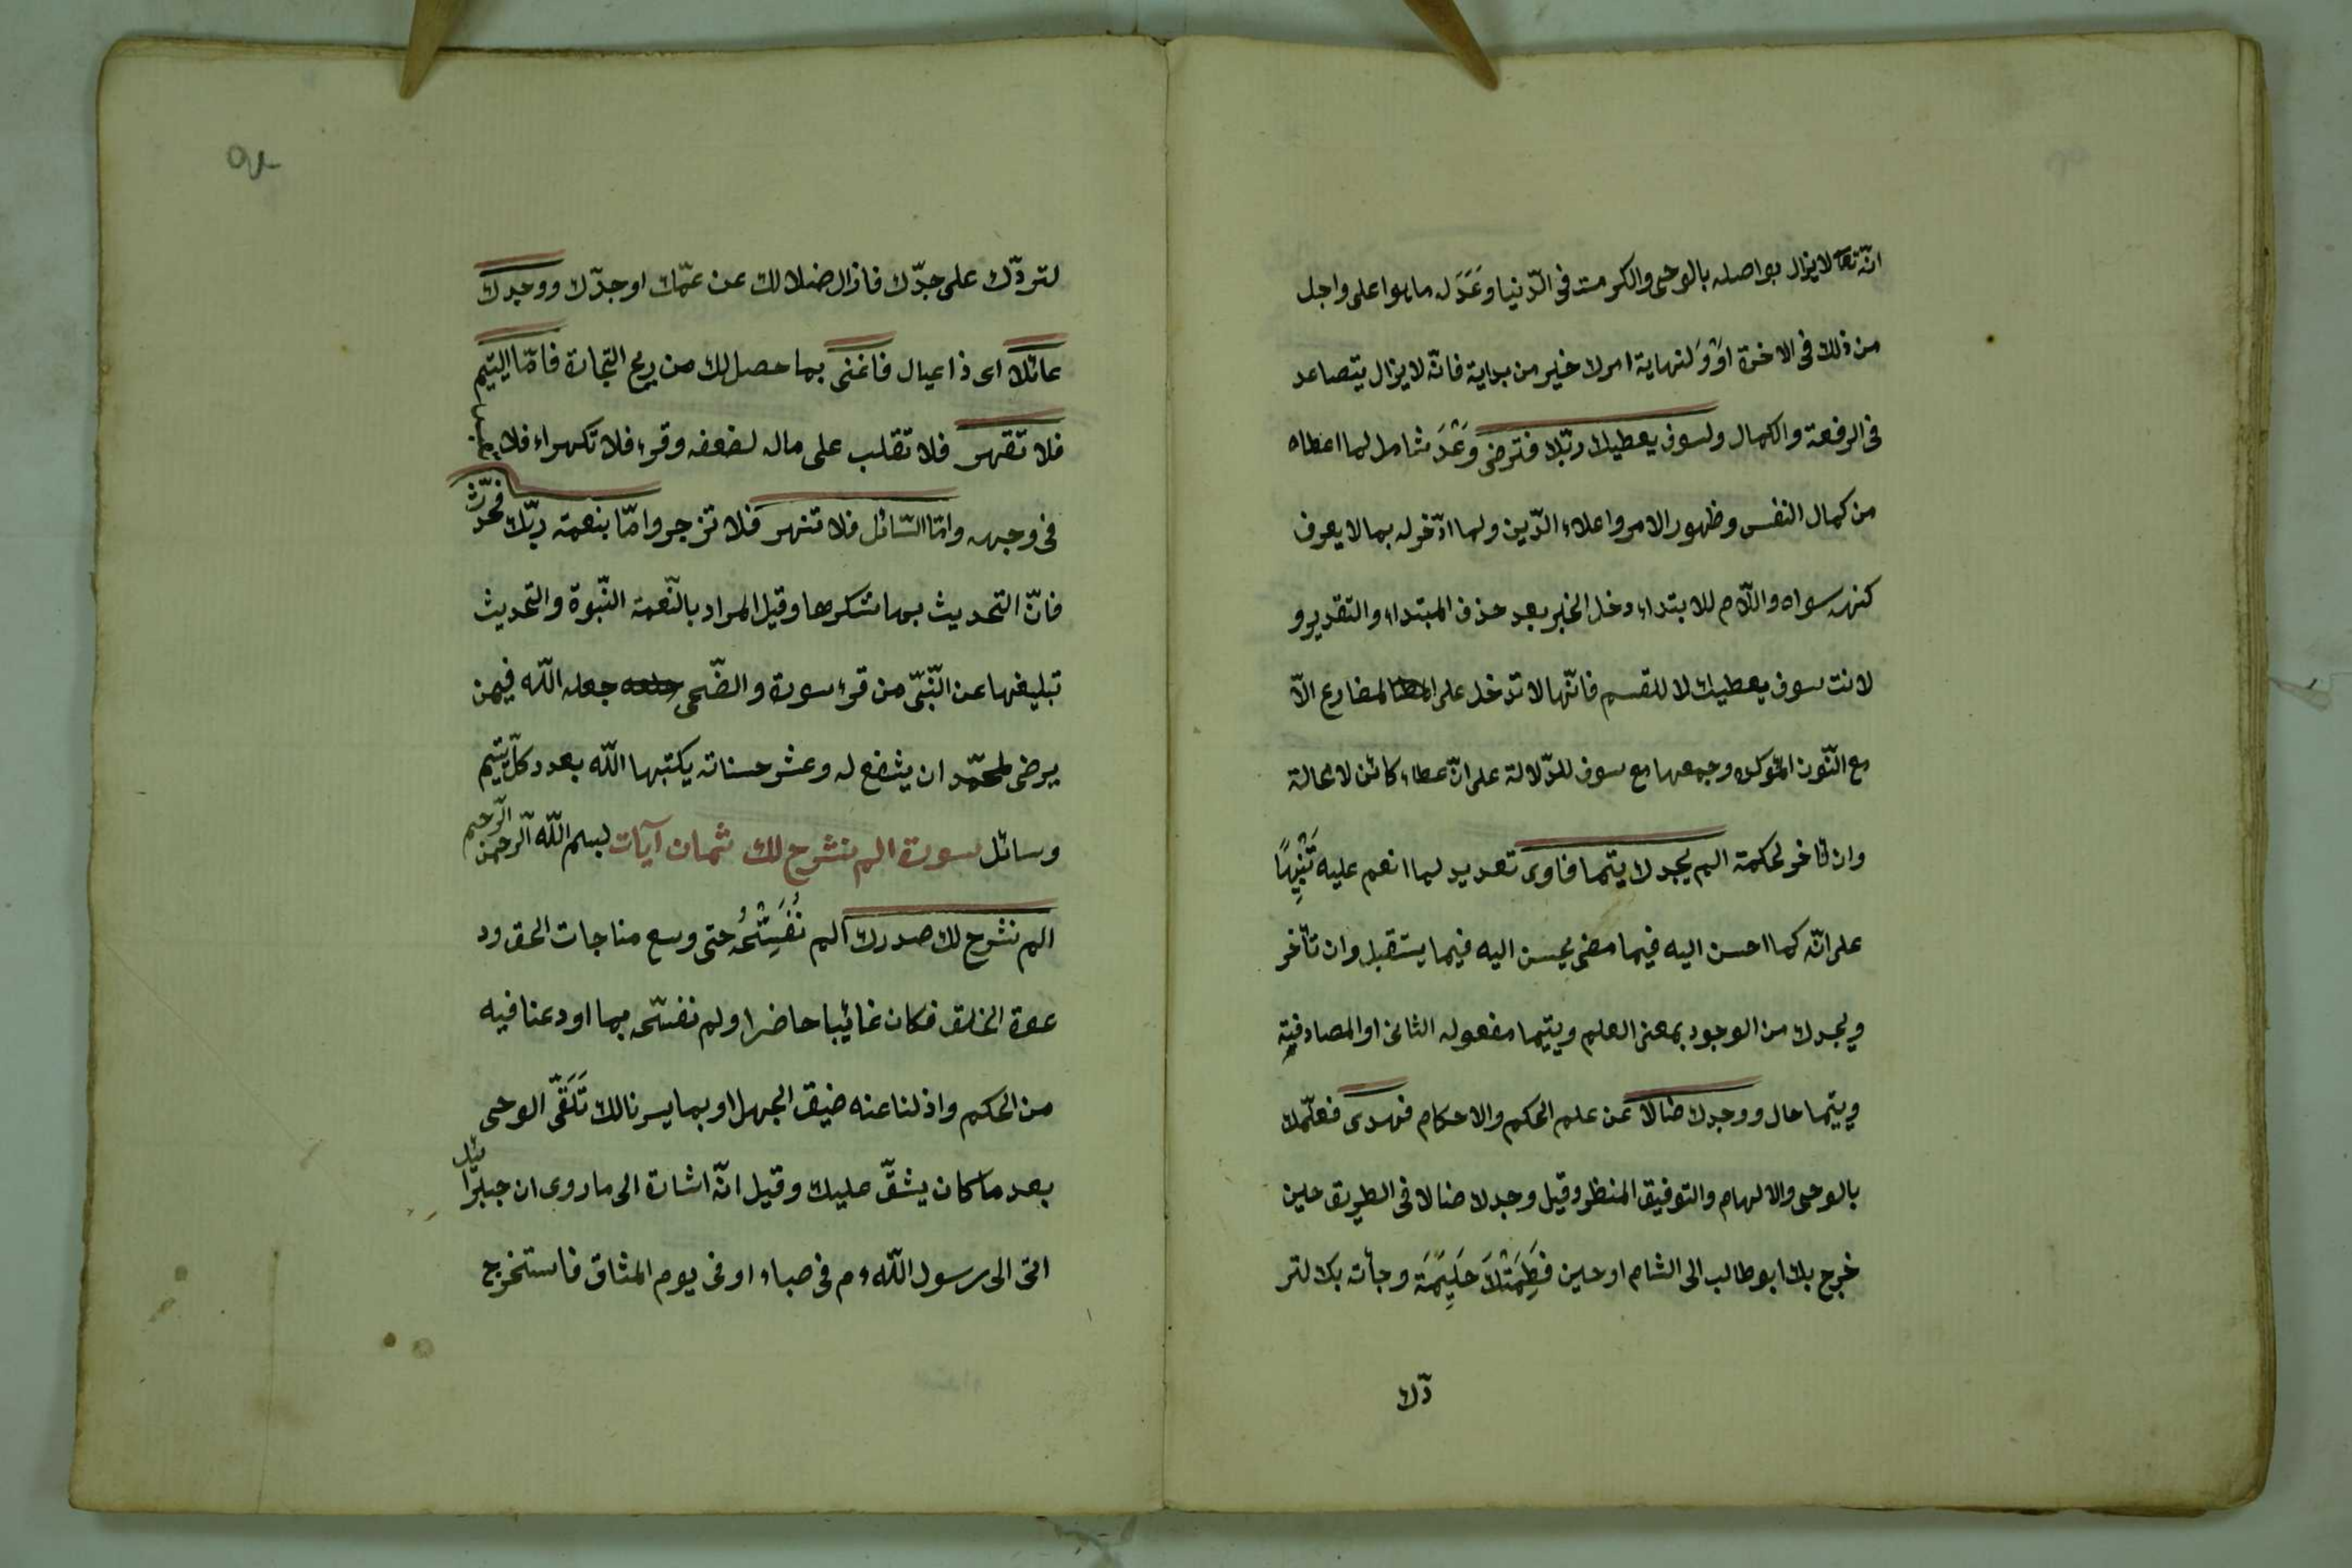 انّه تعا لا يزال يواصله بالوحى والكرمت فى الدّنيا وَعَدَ له ما هو اعلى واجل
من ذلك فى الاخرة اوْ وَلنهاية امرك خير من بداية فانّه لا يزال يتصاعد
فى الرفعة والكمال ولسوف يعطيك ربّك فترضى وَعْدَ شامل لما اعطاه
من كمال النفس وظهور الامر واعلاء الدّين ولما ادّخر له بما لا يعرف
كنهه سواه واللّام للابتداء دخل الخبر بعد حذف المبتداء والتقدير و
لانت سوف يعطيك لا للقسم فانّها لا تدخل على المضارع الاّ
مع النّون المؤكده وجمعها مع سوف للدّلالة على انّ عطاء كائن لا محالة
وان تاخر لحكمة الم يجدك يتما فاوى تعديد لما انعم عليه تَنْبِيهًا
على انّه كما احسن اليه فيما مضى يحسن اليه فيما يستقبل وان تأخر
ويجدك من الوجود بمعنى العلم ويتيما مفعوله الثانى او المصادفية
ويتما حال ووجدك ضالا عن علم الحكم والاحكام فهدى فعلّمك
بالوحى والالهام والتوفيق المنظر وقيل وجدك ضالا فى الطريق حين
خرج بك ابو طالب الى الشام او حين فَطَمَتْكَ حَلِيمَة وجأت بك لتر
دّك
لتردّك على جدّك فازال ضلالك عن عمّك او جدّك ووجدك
عائلا اى ذا عيال فاغنى بما حصل لك من ربح التجارة فامّا اليتيم
فلا تقهر فلا تقلب على ماله لضعفه وقرء فلا تكهر اء فلا
فى وجهه وامّا السّائل فلا تنهر فلا تزجر وامّا بنعمة ربّك فحدّث
فانّ التحديث بها شكرها وقيل المراد بالنّعمة النّبوة والتحديث
تبليغها عن النّبىّ من قرء سورة والضّحى جعله اللّه فيمن
يرضى لمحمّد ان يشفع له وعشر حسناته يكتبها اللّه بعدد كلّ يتيم
وسائل سورة الم نشرح لك ثمان آيات بسم اللّه الرّحمن الرّحيم
الم نشرح لك صدرك الم نُفَسِّحْهُ حتى وسع مناجات الحق ود
عوة الخلق فكان غائبا حاضرا ولم نفسّحه بما اودعنا فيه
من الحكم واذلنا عنه ضيق الجهل او بما يسرنا لك تَلَقّى الوحى
بعد ما كان يشقّ عليك وقيل انّه اشارة الى ما روى ان جبرائيل
اتى الى رسول اللّه ءم فى صباء او فى يوم المثاق فاستخرج